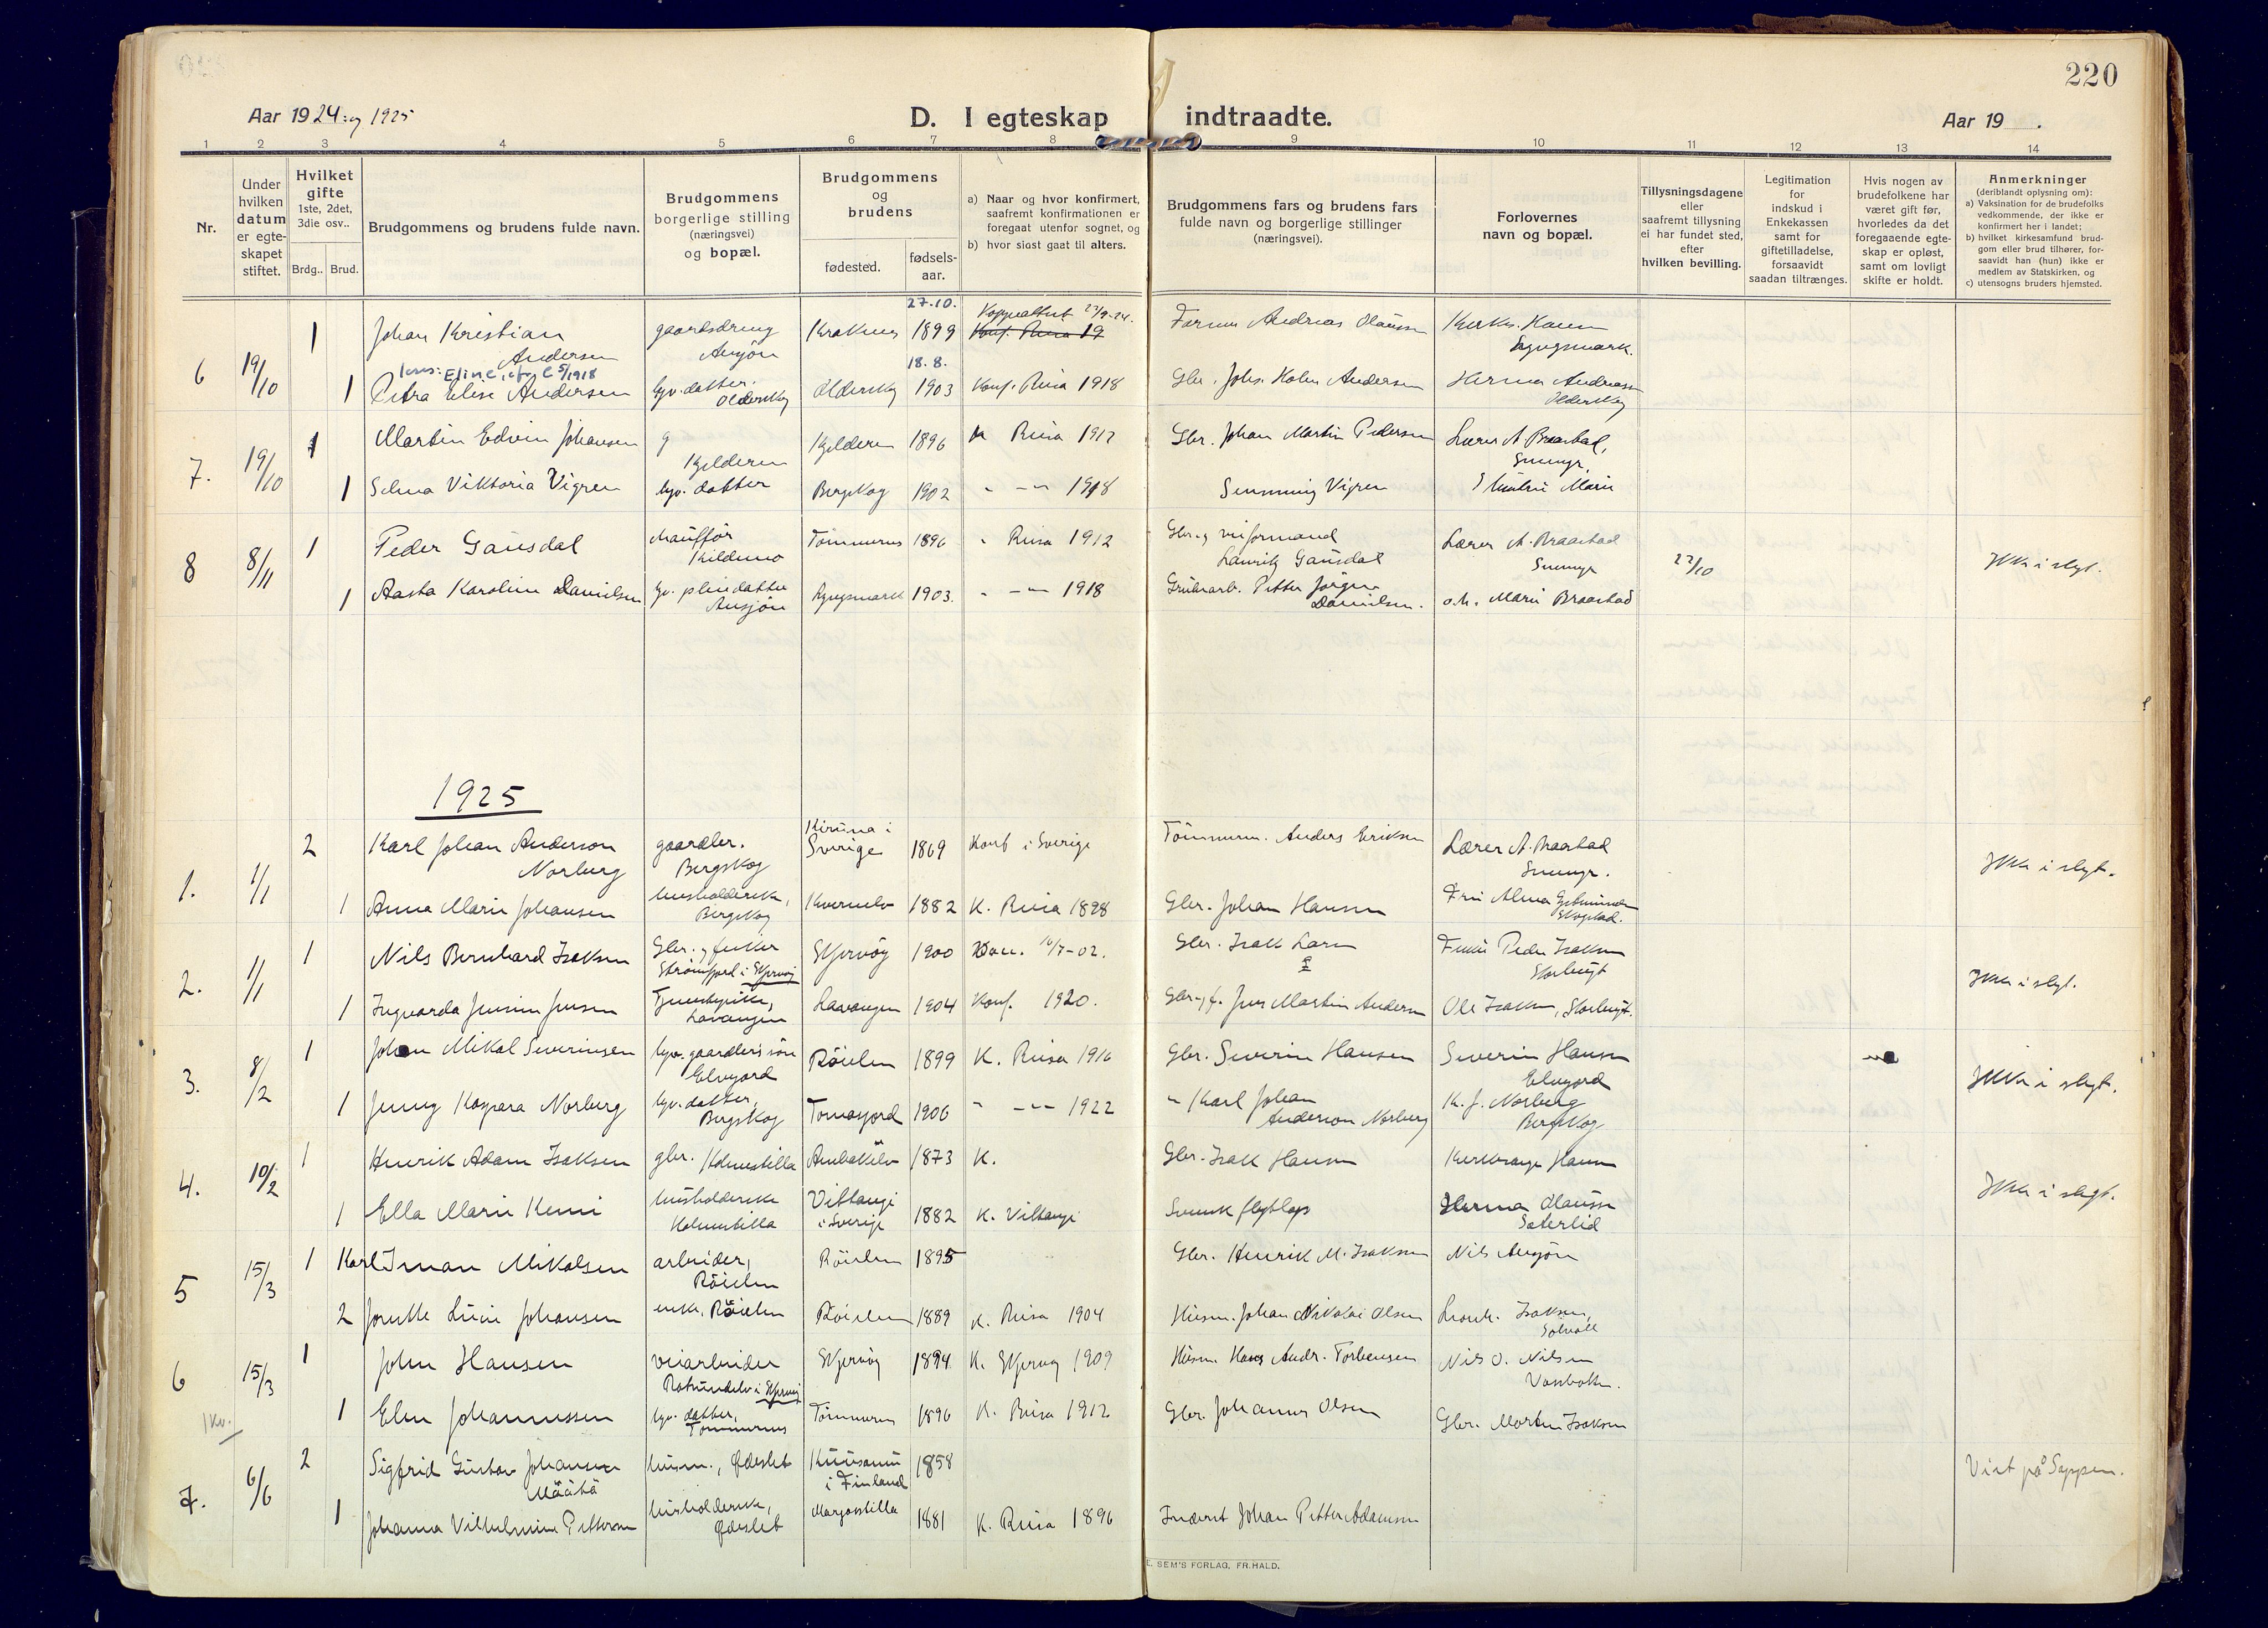 220
Aar 1924 og 1925
D. I egteskap indtraadte.
Aar 19 .
1 2 3 4 5 6 7 8 9 10 11 12 13 14
Nr.
Under hvilken datum er egte-skapet stiftet.
Hvilket gifte 1ste, 2det, 3die osv..
Brdg.. Brud.
Brudgommens og brudens fulde navn.
Brudgommens borgerlige stilling (næringsvei) og bopæl.
Brudgommens og brudens
fødested.
fødsels-aar.
a) Naar og hvor konfirmert, saafremt konfirmationen er foregaat utenfor sognet, og
b) hvor sidst gaat til alters.
Brudgommens fars og brudens fars fulde navn og borgerlige stillinger (næringsvei).
Forlovernes navn og bopæl.
Tillysningsdagene eller saafremt tillysning ei har fundet sted, efter hvilken bevilling.
Legitimation for indskud i Enkekassen samt for giftetilladelse, forsaavidt saadan tiltrænges.
Hvis nogen av brudefolkene har været gift før, hvorledes da det foregaaende egte-skap er opløst, samt om lovligt skifte er holdt.
Anmerkninger (deriblandt oplysning om):
a) Vaksination for de brudefolks vedkommende, der ikke er konfirmert her i landet;
b) hvilket kirkesamfund brud-gom eller brud tilhører, for-saavidt han (hun) ikke er medlem av Statskirken, og
c) utensogns bruders hjemsted.
6 19/10 1 Johan Kristian Andersen gaardsdreng Ansjön Kraknes 27.10. 1899 Konf. Risa 19 Andreas Olaussen
1 Petra Elise Andersen Eline 5/1918 gv. datter. Olderskog Olderskog 18.8. 1903 Konf. Risa 1918 Gbr. Johs. Holm Andersen Olderskog
7. 19/10 1 Martin Edvin Johansen g Kjelderen Kjelderen 1896 Risa 1912 Gbr. Johan Martin Pedersen Lærer A Braastad,
1 Selma Viktoria Vigren datter Bergskog 1902 " - " 1918 Vigren Marie
8 8/11 1 Peder Gausdal chaufför Kildemo Tömmernes 1896 " Risa 1912 Gbr. og veiformand Lauritz Gausdal Lærer A. Braastad 22/10 Ikke i slegt.
1 Aasta Karoline Danielsen datter Ansjön Lyngsmark 1903. " - " 1918 Grubearb. Petter Jörgen Danielsen. Marie Braastad
1925
1. 1/1 2 Karl Johan Anderson Norberg gaardbr. Bergskog Kiruna i Sverige 1869 Konf i Sverige Tömmerm. Anders Erikson Lærer A. Braastad Ikke i slegt.
1 Anna Marie Johansen husholderske, Bergskog Kvernelv 1882 K. Risa 1898 Gbr. Johan Hansen Fru Alma
2. 1/1 1 Nils Bernhard Isaksen Gbr. og fisker Strömfjord i Skjervöy Skjervöy 1900 16/7-02. Gbr. Isak Larsen Fisker Peder Isaksen Storbugt Ikke i slegt.
1 Ingvarda Jensine Jensen Tjenestepike, Lavangen Lavangen 1904 Konf. 1920. Gbr. og f. Jens Martin Andersen Ole Isaksen, Storbugt.
3. 8/2 1 Johan Mikal Severinsen gaardbr. sön Elvejord Röielen 1899 K. Risa 1916 Gbr. Severin Hansen Severin Hansen Elvejord Ikke i slegt.
1 Jenny Kaspara Norberg datter, Bergskog Tomasjord 1906 " - " 1922 " Karl Johan Anderson Norberg K. J. Norberg Bergskog
4. 10/2 1 Henrik Adam Isaksen gbr. Holmestilla 1873 K. Gbr. Isak Hansen Ikke i slegt.
1 Ella Marie Kemi husholderske Holmestilla Vittangi i Sverige 1882 K. Vittangi Svensk flytlap Herma Olaussen
5 15/3 1 Karl Iman Mikalsen arbeider, Röielen Röielen 1895 Gbr. Henrik M. Isaksen Nils Ansjön
2 Lucie Johansen enke, Röielen Röielen 1889 K. Risa 1904 Husm. Johan Nikolai Olsen Isaksen, Solvoll
6 15/3 1 John Hansen veiarbeider Rotsundelv i Skjervöy Skjervöy 1894 K. Skjervöy 1909 Husm. Hans Andr. Torbensen Nils O. Nilsen
1 Elen Johannessen datter, Tömmernes Tömmernes 1896 K. Risa 1912 Gbr. Johannes Olsen Gbr. Morten Isaksen
7. 6/6 2 Sigfrid Gustav Johansen Määttä husm., Ödeslet Kuusamu i Finland 1858 Viet på Sappen.
1 Johanna Vilhelmine Petterson husholderske, Ödeslet 1881 K. Risa 1896 Johan Petter Adamsen
E. SEM'S FORLAG, FR.HALD.